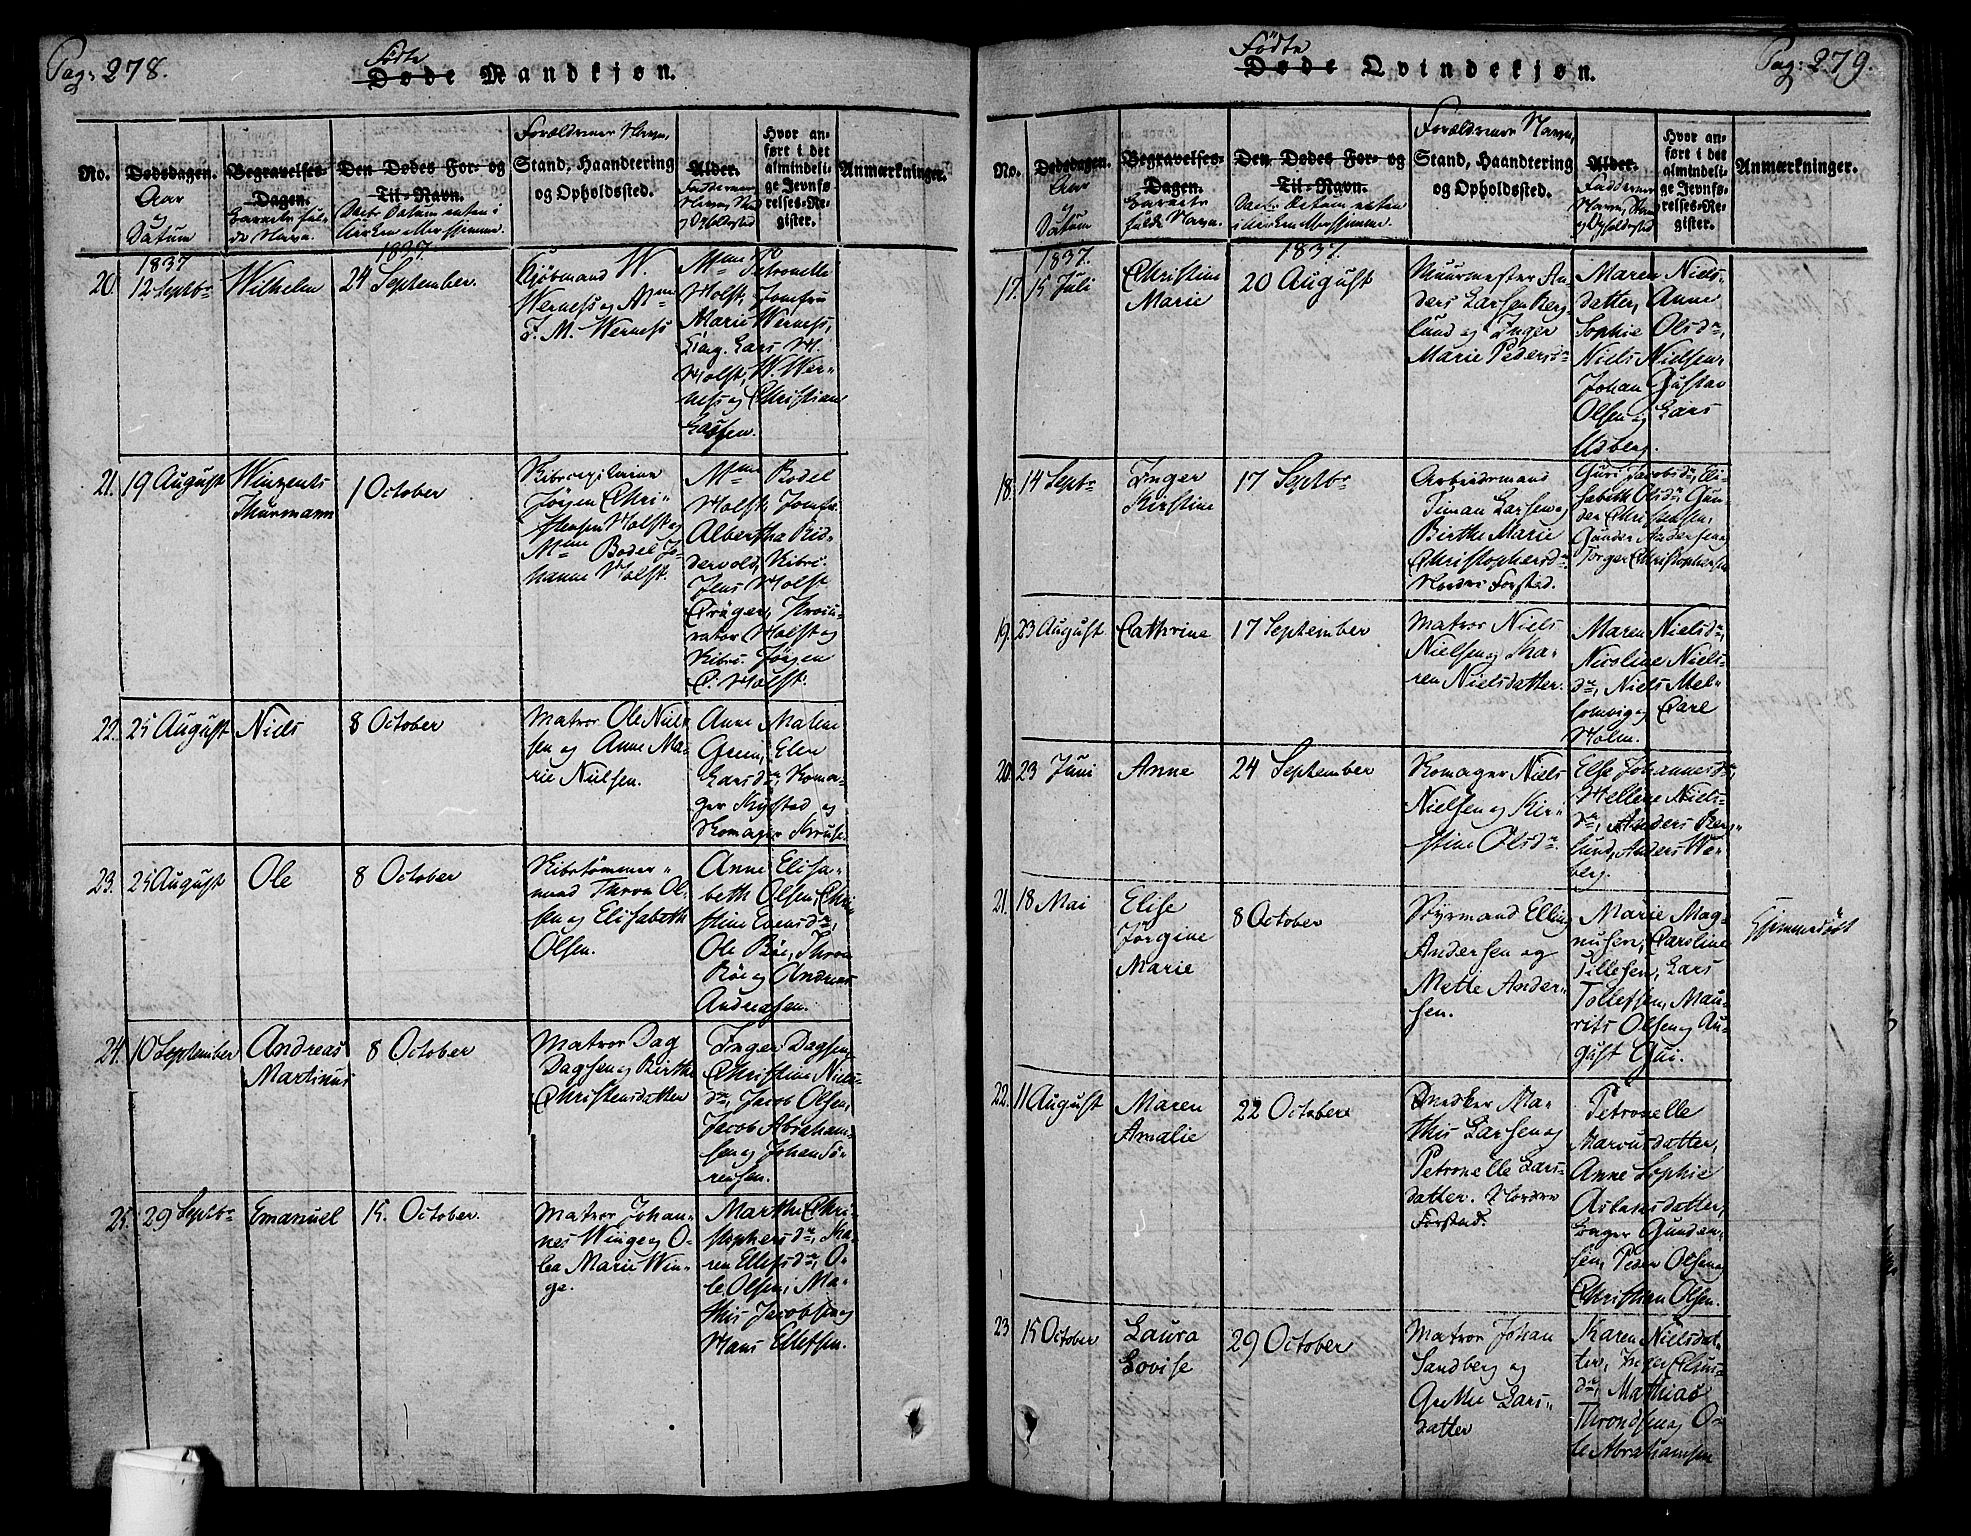 Pag: 278.
Fødte
Døde Mandkjøn.
No.
Dødsdagen.
Aar
og
Datum
Begravelses-
Dagen.
Barnets ful-
de Navn.
Den Dødes For- og
Til-Navn.
Daabs Datum enten i
Kirken eller hjemme.
Forældrenes Navn,
Stand, Haandtering
og Opholdssted.
Alder.
Faddernes
Navn, Stand
og Opholdssted
Hvor an-
ført i det
almindeli-
ge Jevnfø-
relses-Re-
gister.
Anmærkninger.
1837
20.
12 Septbr
Wilhelm
1837.
24 September.
Kjøbmand W.
Werness og Mme
F. M. Werness
Mme Petronelle
Holst, Jomfru
Marie Werness,
Lars H.
Holst, W. Wer-
ness og Christian
Lassen.
21.
19 August
Winzents
Thurmann
1 October
Jørgen Chri-
stensen Holst og
Mme Bodel Jo-
hanne Holst.
Mme Bodel
Holst, Jomfr.
Albertha Rid-
dervold,
Jens Holst
Crøger, Procu-
rator Holst og
Jørgen
C. Holst.
22.
25 August
Niels
8 October
Matros Ole Niel-
sen og Anne Ma-
rie Nielsen.
Anne Malene
Green, Elen
Larsdr,
og
23.
25 August
Ole
8 October
mand Thron Ol-
sen og Elisabeth
Olsen.
Anne Elisa-
beth Olsen, Chri
stine Evensdr,
Ole Böe, Thron
Böe og Andreas
Andreasen.
24.
10 September
Andreas
Martinus
8 October
Matros Dag
Dagsen og Birthe
Christensdatter
Inger Dagsen,
Christine Niels-
dr, Jacob Olsen,
Jacob Abraham-
sen og Johan Sö-
rensen.
25.
29 Septbr
Emanuel
15. October.
Matros Johan-
nes Winge og O-
lea Marie Win-
ge.
Marthe Chri-
stophersdr, Ka-
ren Ellefsdr, O-
le Olsen, Ma-
this Jacobsen og
Hans Ellefsen.
Pag: 279.
Fødte
Døde Qvindekjøn.
No.
Dødsdagen.
Aar
og
Datum
Begravelses-
Dagen.
Barnets
fulde Navn.
Den Dødes For- og
Til-Navn.
Daabs Datum enten
i Kirken eller hjemme.
Forældrenes Navn,
Stand, Haandtering
og Opholdssted.
Alder.
Faddernes
Navn, Stand
og Opholdssted
Hvor an-
ført i det
almindeli-
ge Jevnfø-
relses-Re-
gister.
Anmærkninger.
1837.
17.
15 Juli
Christine
Marie
1837.
20 August
Muurmester An-
ders Larsen Berg-
lund og Inger
Marie Pedersdr
Maren Niels-
datter, Anne
Sophie Olsdr,
Niels Nielsen,
Johan Gustav
Olsen og Lars
Udberg.
18.
14 Septbr
Inger
Kirstine
17 Septbr
Arbeidsmand
Timan Larsen og
Birthe Marie
Christophersdr
Nordre Forstad.
Guri Jacobsdr, Eli-
sabeth Olsdr, Gun-
der Christensen,
Gunder Andersen og
Torger Christophersen
19.
23 August
Cathrine
17 September
Matros Niels
Nielsen og Ma-
ren Nielsdatter.
Maren Nielsdr,
Nicoline Niels-
dr, Niels Mel-
somvig og Carl
Holm.
20.
23 Juni
Anne
24 September
Skomager Niels
Nielsen og Kir-
stine Olsdr.
Else Johannesdr,
Hellene Niels-
dr, Anders Berg-
lund, Anders We-
berg.
21.
18 Mai
Elise
Jørgine
Marie
8 October
Styrmand Elling
Andersen og
Mette Ander-
sen.
Marie Mag-
nusen, Caroline
Tillesen, Lars
Tollefsen, Mau-
ritz Olsen og Au-
gust Gui.
Hjemmedøbt
22.
11 August
Maren
Amalie
22 October
Snedker Ma-
this Larsen og
Petronelle Lars-
datter. Nordre
Forstad.
Petronelle
Marcusdatter,
Anne Sophie
Aslaksdatter,
Gunder-
sen, Peder Olsen og
Christian Olsen.
23
15 October
Laura
Lovise
29 October
Matros Johan
Sandberg og
Grethe Lars-
datter
Karen Nielsdat-
ter, Inger Claus-
dr, Mathias
Throndsen og O-
le Abrahamsen